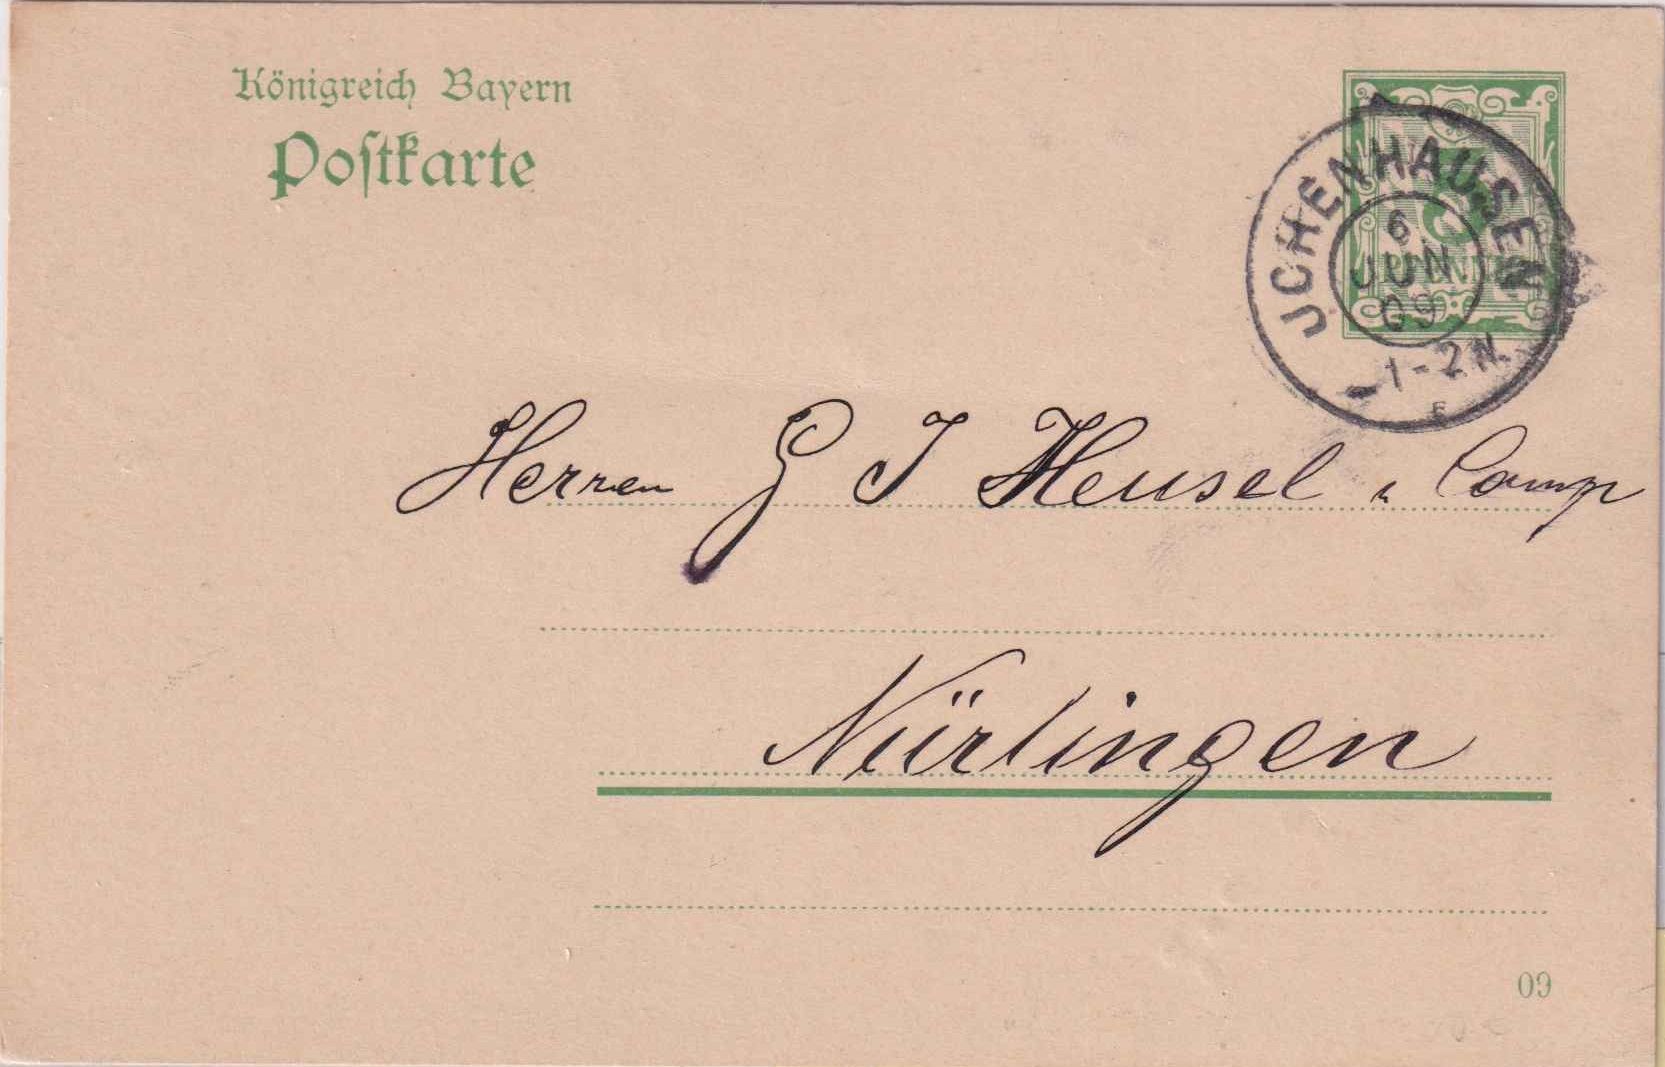 Königreich Bayern
Postkarte
5
JCHENHAUSEN
6
JUN
09
1-2 N.
Herren G J Heusel & Comp
Nürtingen
09